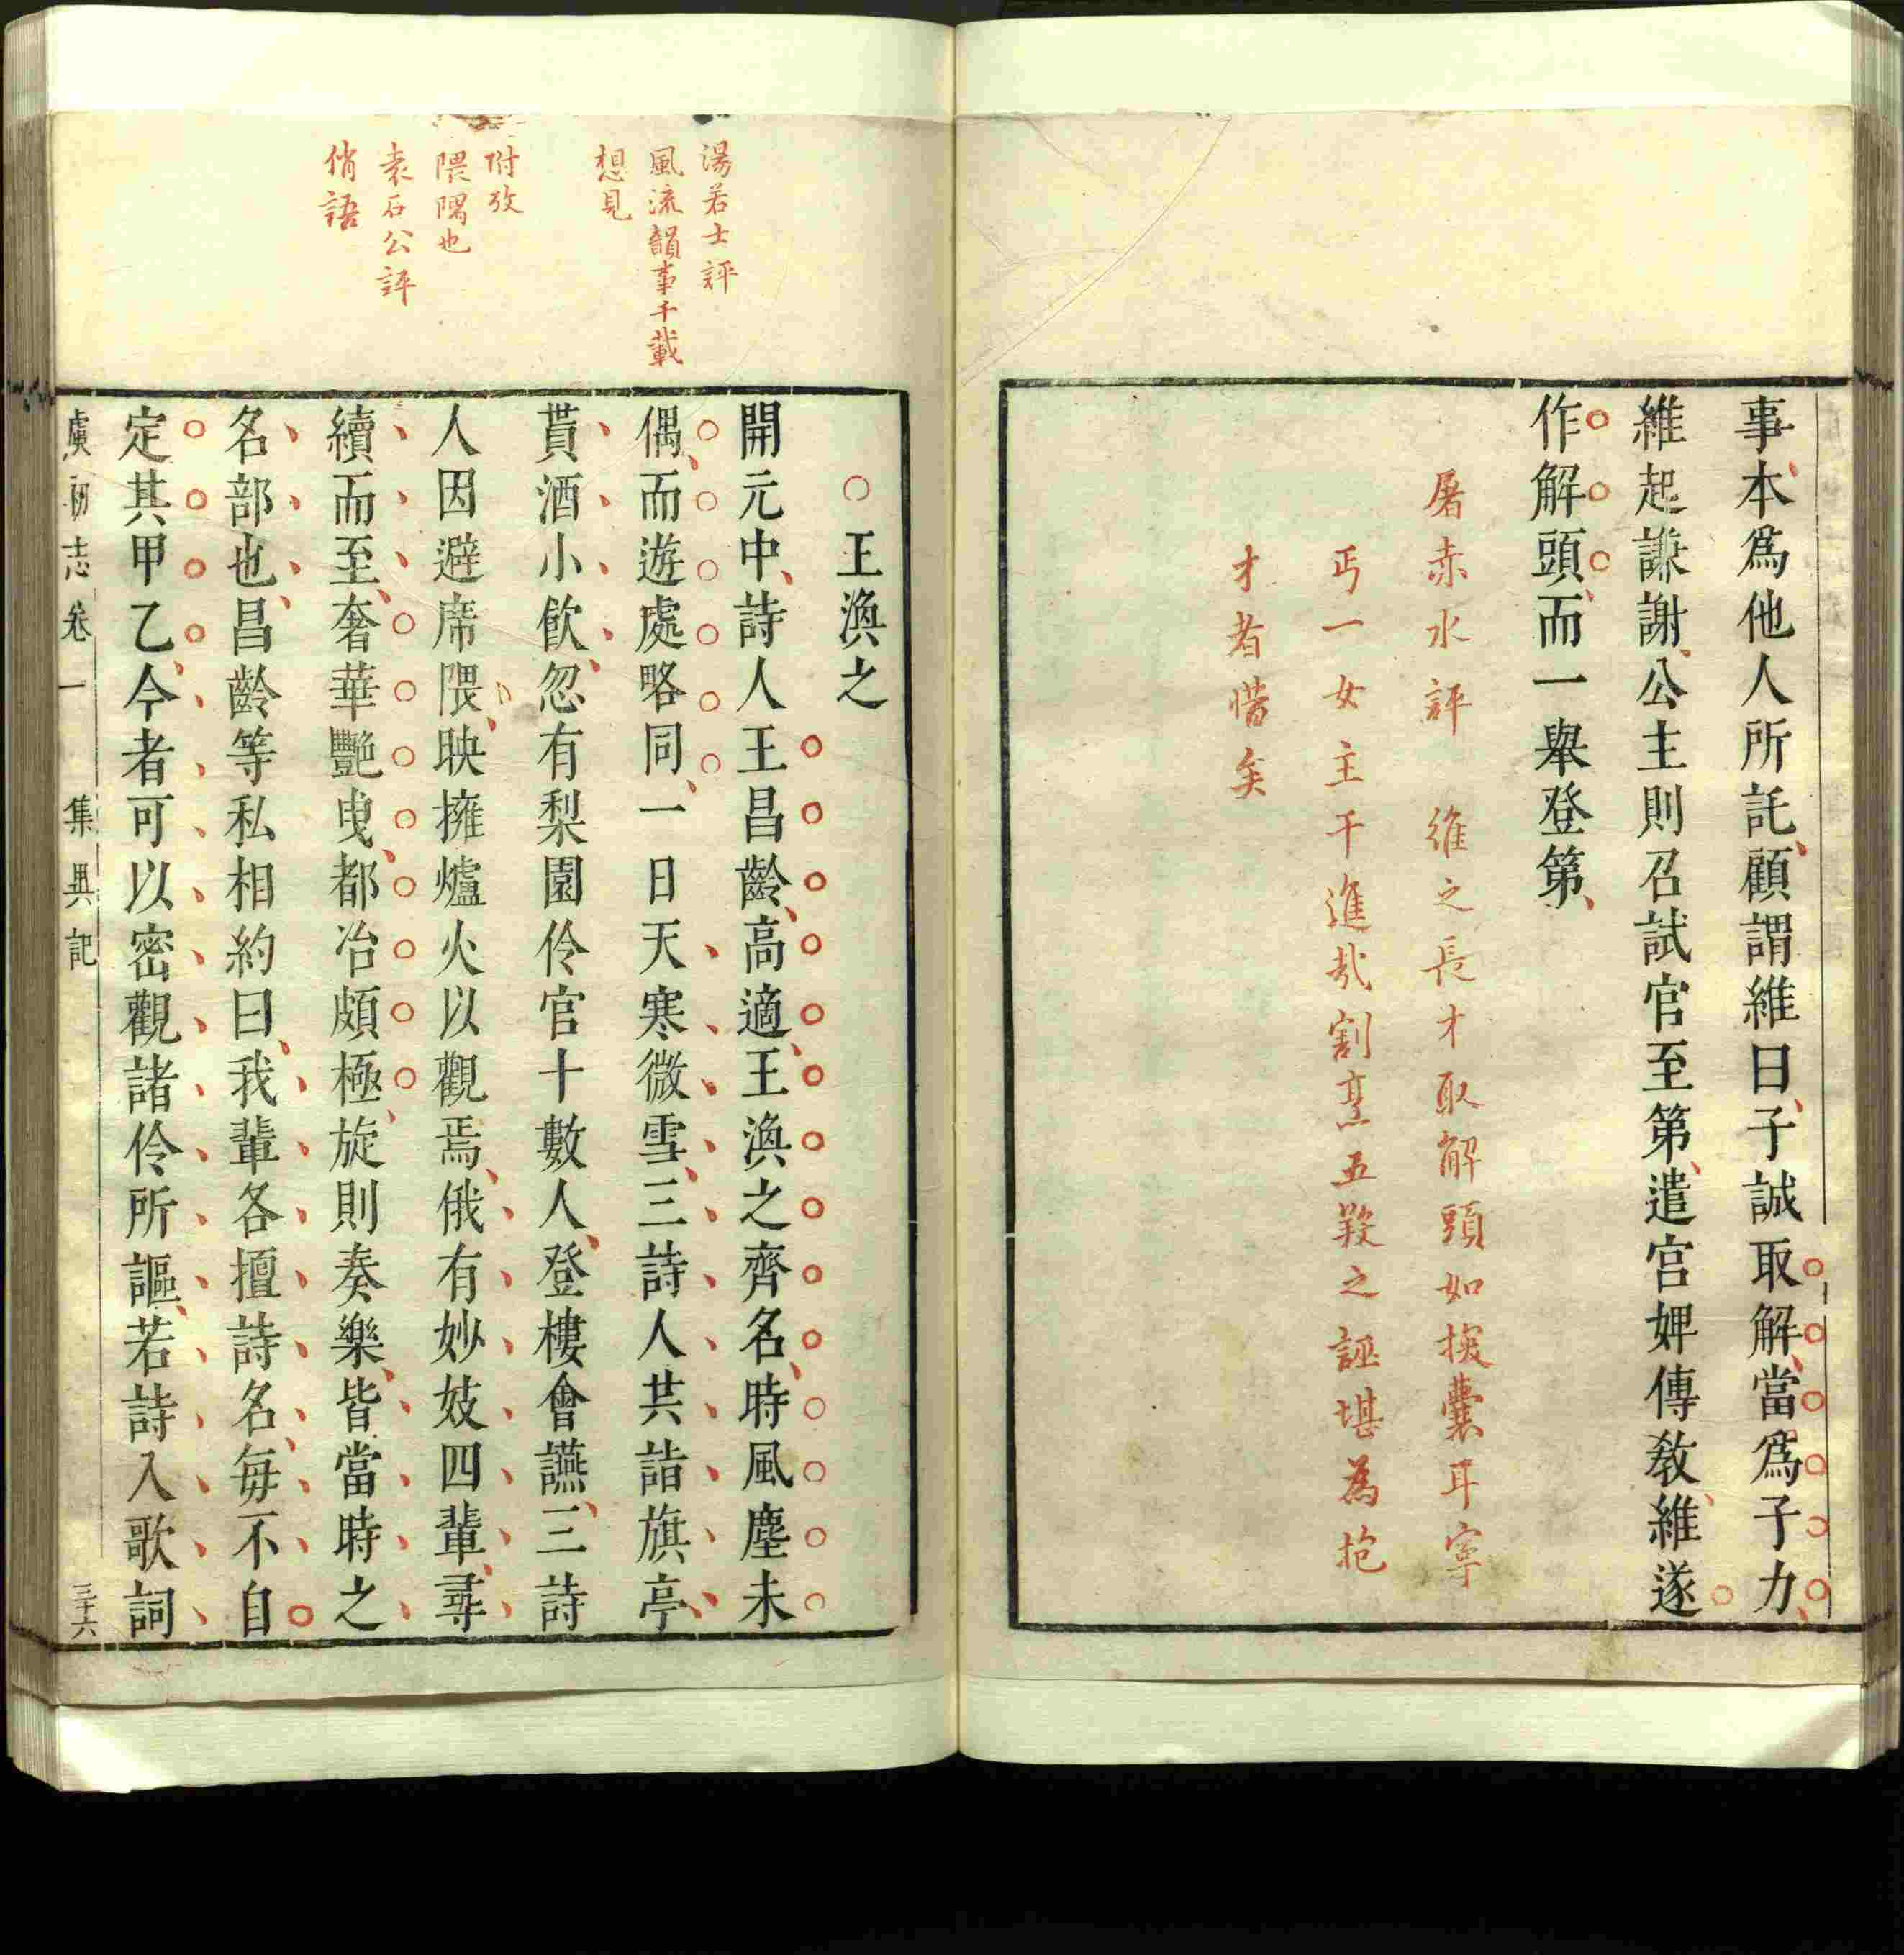 事本爲他人所託顧謂維曰子誠取解當爲子力
維起謙謝公主則召試官至第遣宮婢傳敎維遂
作解頭而一舉登第
屠赤水評　維之長才取解頭如探囊耳寧
丐一女主干進哉割烹五羖之誣堪為抱
才者惜矣
湯若士評
風流韻事千載
想見
附攷
隈隅也
袁石公評
俏語
○王渙之
開元中詩人王昌齡高適王渙之齊名時風塵未
偶而遊處略同一日天寒微雪三詩人共詣旗亭
貰酒小飲忽有梨園伶官十數人登樓會讌三詩
人因避席隈映擁爐火以觀焉俄有妙妓四輩尋
續而至奢華艷曳都冶頗極旋則奏樂皆當時之
名部也昌齡等私相約曰我輩各擅詩名每不自
定其甲乙今者可以密觀諸伶所謳若詩入歌詞
虞初志　卷一　集異記　三十六